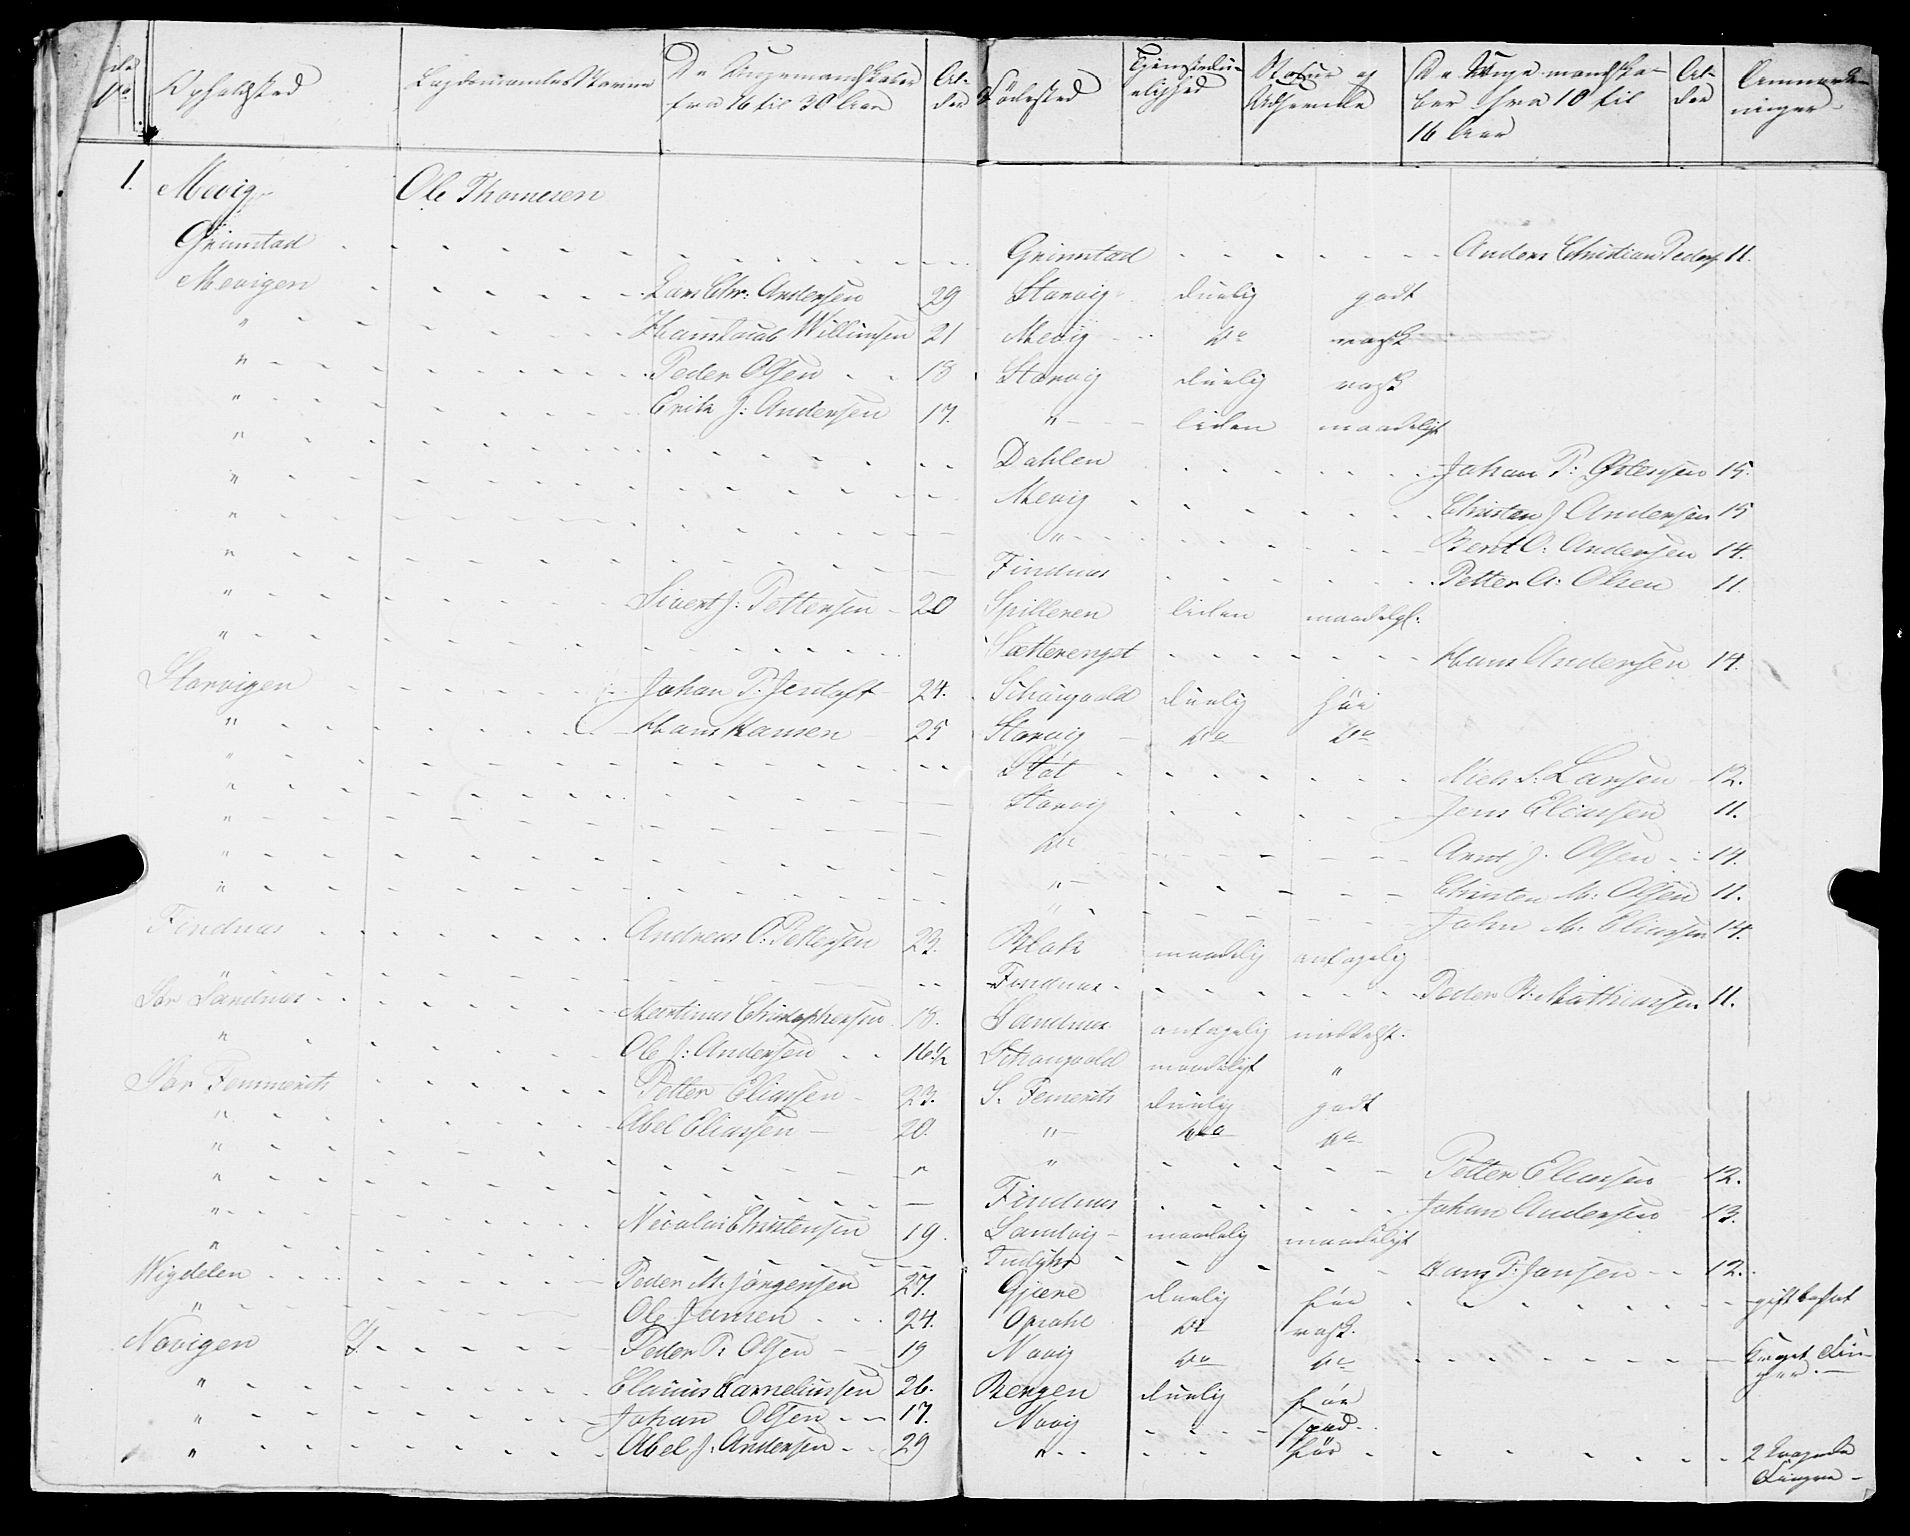 No. Opholdsted Lægdsmandens Navne De Unge mandskaber fra 16 til 30 Aar Alder Fødested Tjenstedueligheds Statur og Udseende De Unge mandskaber fra 10 til 16 Aar Alder Anmærkninger
1. Mevig Ole Thomesen
Grimstad Grimstad Anders Christian Peders. 11.
Mevigen Lars Chr: Andersen 29 Storvig duelig godt
" Willumsen 21 Mevig do rask
" Peder Olsen 18 Storvig duelig rask
" Erik J: Andersen 17. " liden maadeligt
" Dahlen Johan P: Østensen 15.
" Mevig Christen J Andersen 15
" " Bent O: Andersen 14.
" Findnæs Petter A: Olsen 11.
" Sivert J: Pettersen 20 Spilleren liden maadelgt.
" Sætterengst Hans Andersen 14.
Storvigen Johan P. Jentoft 24. duelig før
" Hans Hansen 25 Storvig do do
" Støt Niels S: Larsen 12.
" Storvig Jens Eliassen 11.
" do Arnt J. Olsen 14.
" " Christen M. Olsen 11.
" John M. Eliassen 14.
Findnæs Andreas O: Pettersen 23. Blak maadelig antagelig
" Findnæs Peder B. Mathiassen 11.
Sør Sandnæs Martinus Christophersen 18. Sandnæs antagelig middelst.
" Ole J: Andersen 16½ maadeligt "
Sør Femmerits Petter Eliassen 23. S. Femerits duelig godt
" Abel Eliassen 20. " do do
" " Petter Eliassen 12.
" Findnæs Johan Andersen 13.
" Nicolai Christensen 19. Sandvig maadelig maadeligt
" Hans P: Jansen 12.
Wigdelen Peder M. Jørgensen 27. Gjære duelig før gift bosat
" Ole Jansen 24. do rask.
Novigen Peder P. Olsen 19 Novig do do
" Clauus Karneliussen 26. Bergen duelig før
" Johan Olsen 17. Novig spæd
" Abel J. Andersen 29 " før 2 Fingre